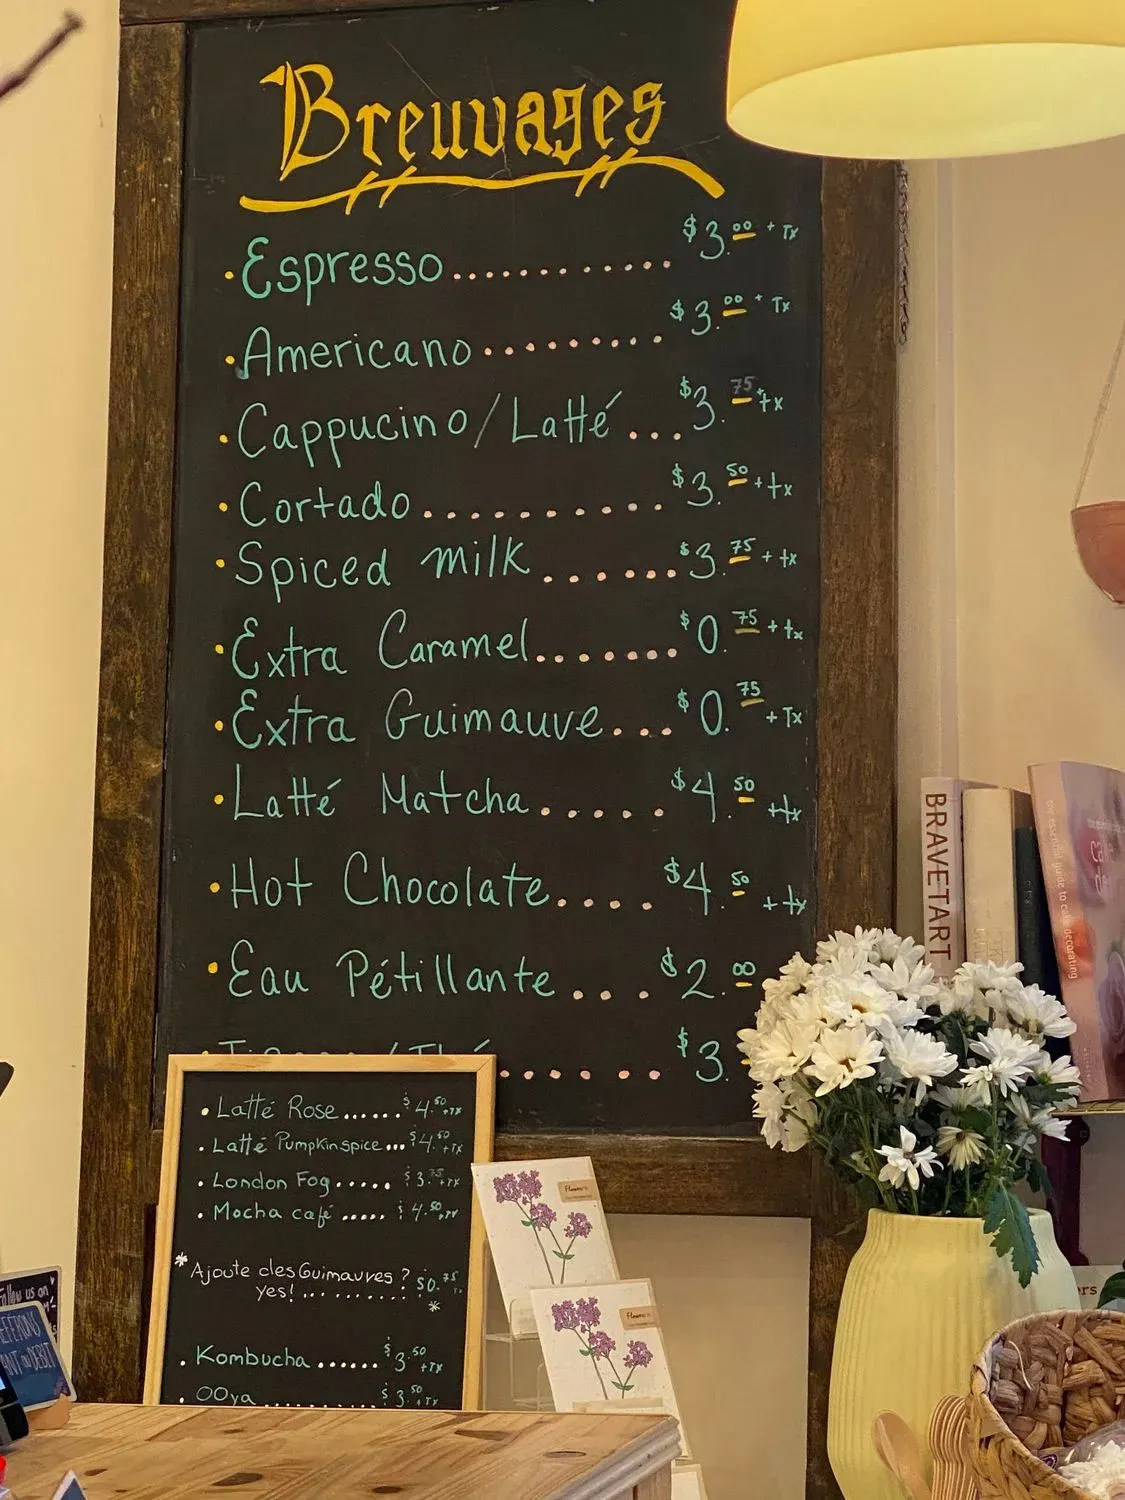 Breuvages
• Espresso............ $3.00 + Tx
• Americano......... $3.00 + Tx
• Cappucino/Latté... $3.75 + tx
• Cortado.......... $3.50 + tx
• Spiced milk....... $3.75 + tx
• Extra Caramel....... $0.75 + tx
• Extra Guimauve... $0.75 + Tx
• Latté Matcha..... $4.50 + tx
• Hot Chocolate.... $4.50 + tx
• Eau Pétillante... $2.00
/Thé ...... $3.
• Latté Rose...... $4.50 +Tx
• Latté Pumpkinspice... $4.50 +Tx
• London Fog..... $3.75 +Tx
• Mocha café..... $4.50 +Tx
* Ajoute des Guimauves ?
yes!......... $0.75 Tx *
• Kombucha...... $3.50 +Tx
• OOya $3.50 +Tx
Flowers
Flowers
BRAVETART
the essential guide to cake decorating
Follow us on
DÉBIT